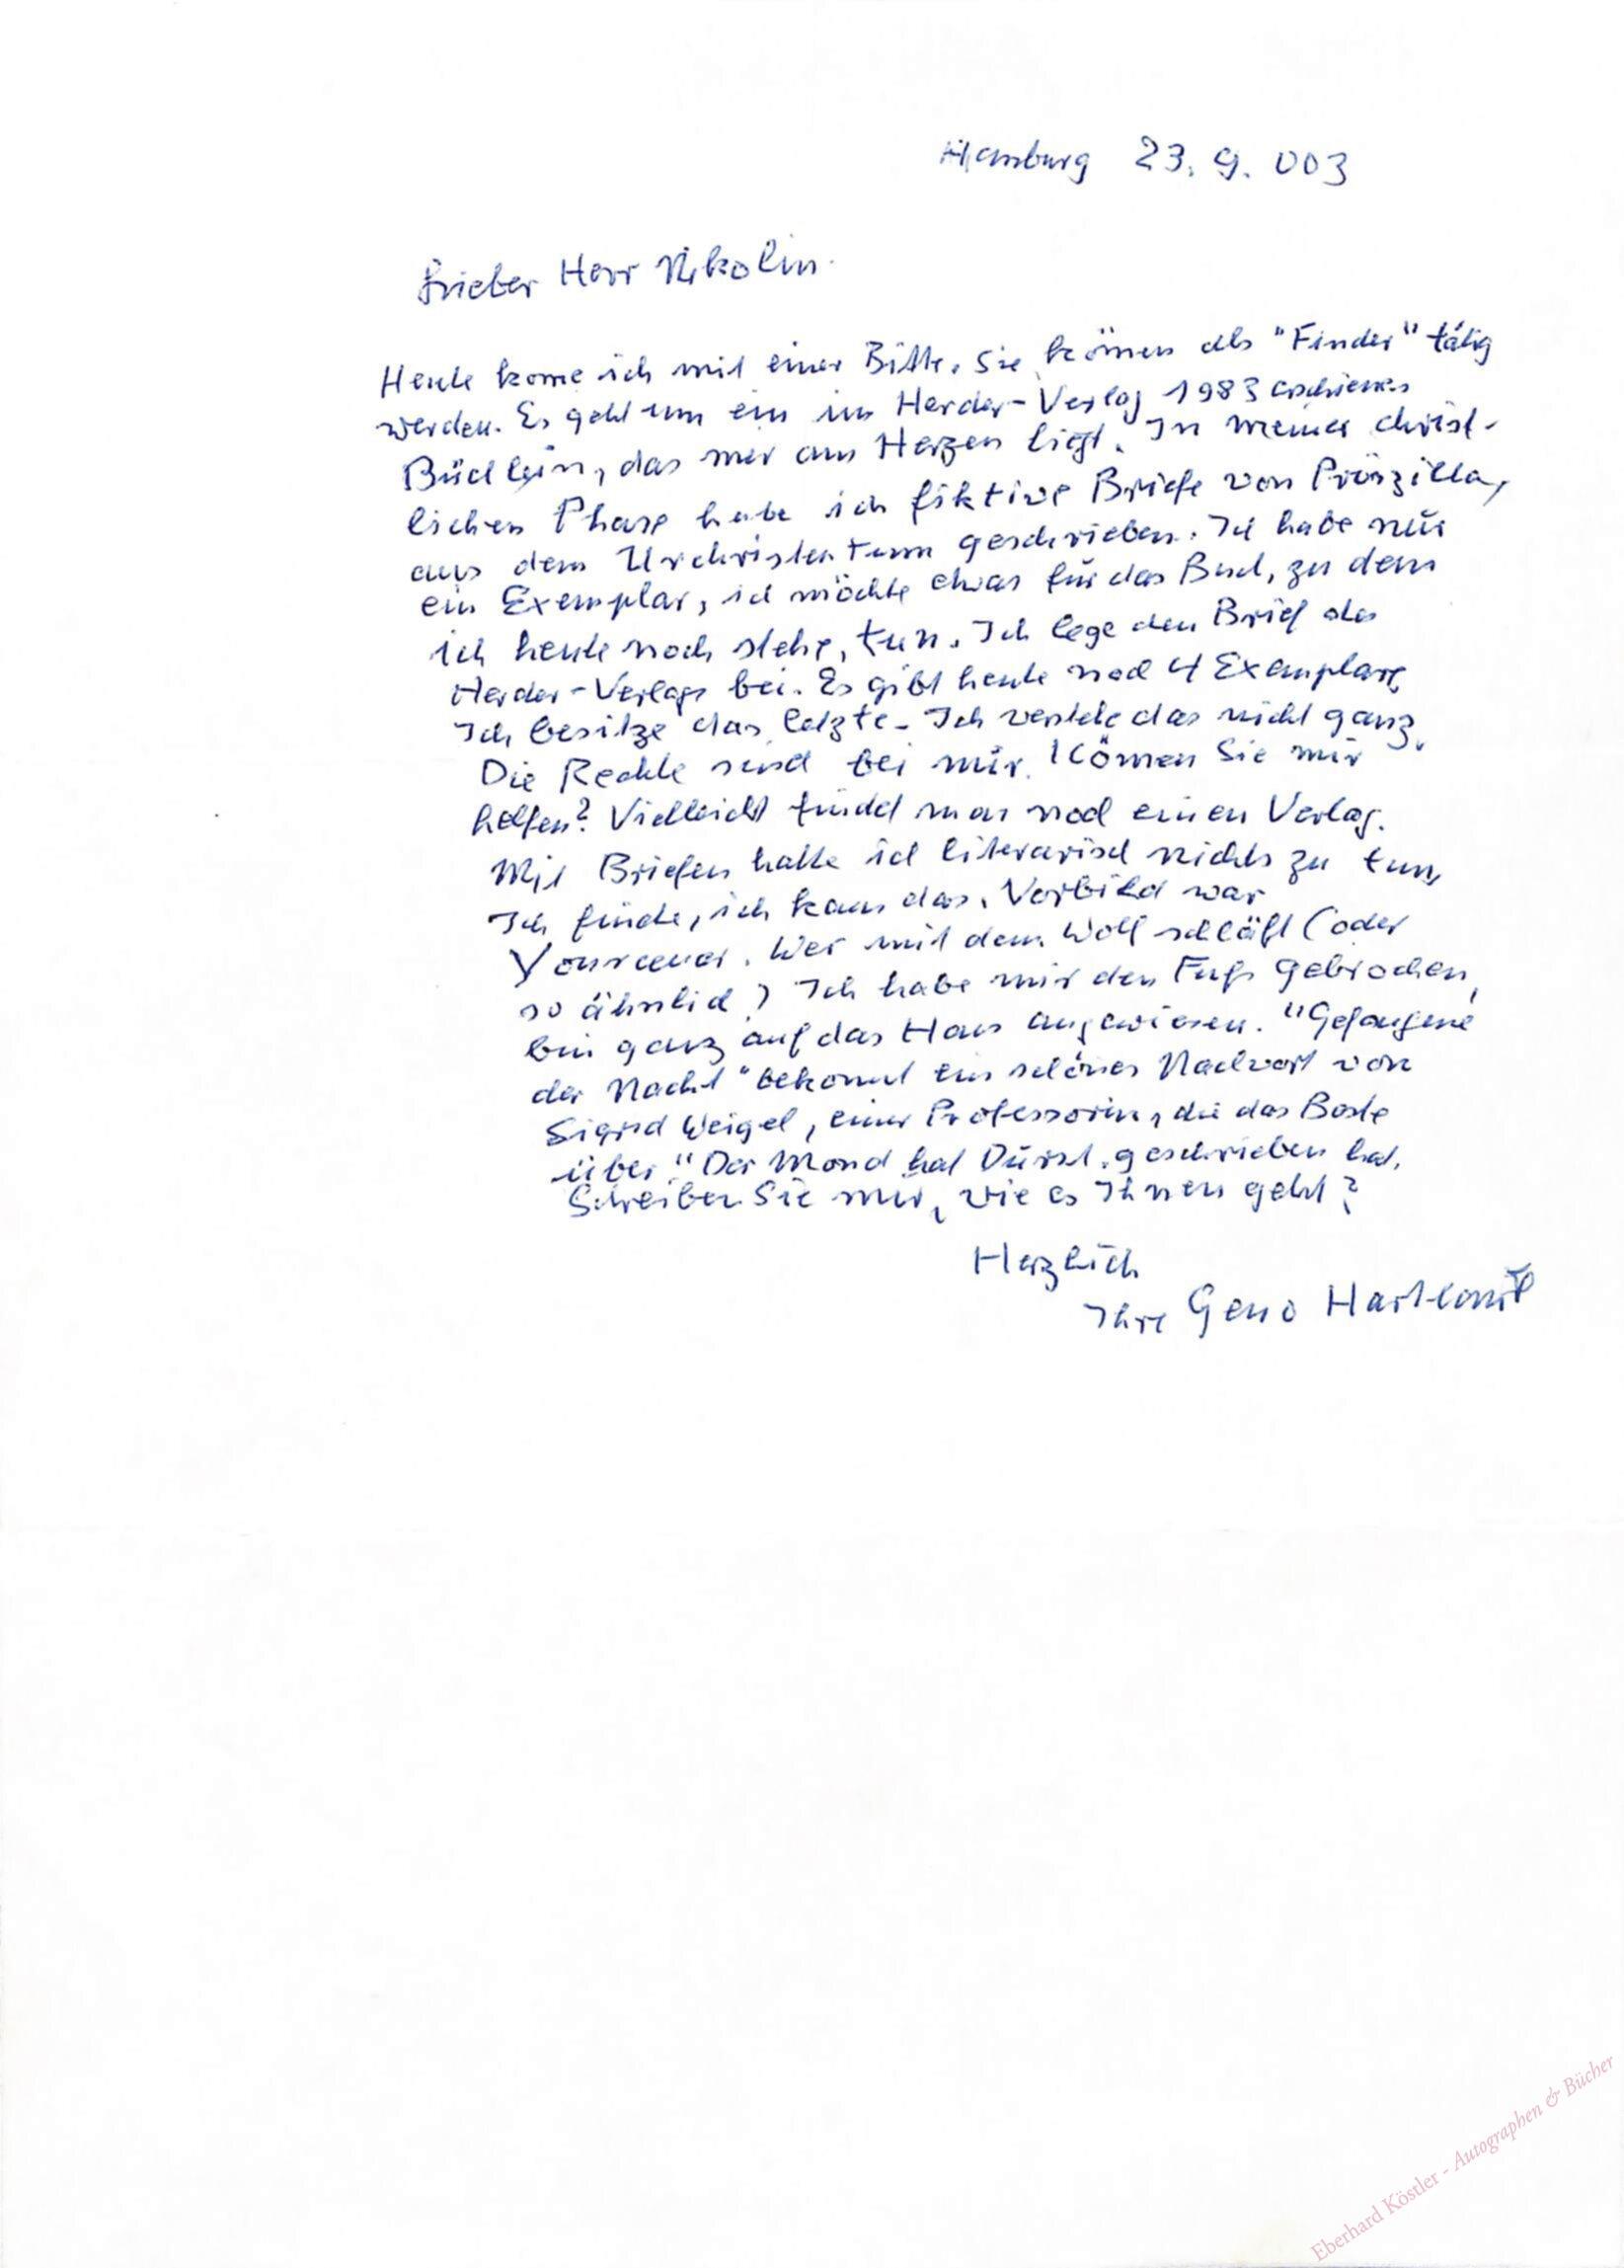 Hamburg 23. 9. 003
Lieber Herr Nikolin.
Heute kome ich mit einer Bitte. Sie könen als "Finder" tätig
werden. Es geht um ein im Herder-Verlag 1983 erschienenes
Büchlein, das mir am Herzen liegt. In meiner christ-
lichen Phase habe ich fiktive Briefe von Priszilla,
aus dem Urchristentum geschrieben. Ich habe nur
ein Exemplar, ich möchte etwas für das Buch, zu dem
ich heute noch stehe, tun. Ich lege den Brief des
Herder-Verlags bei. Es gibt heute noch 4 Exemplare
Ich besitze das letzte. Ich verstehe das nicht ganz.
Die Rechte sind bei mir. Könen Sie mir
helfen? Vielleicht findet man noch einen Verlag.
Mit Briefen hatte ich literarisch nichts zu tun,
Ich finde, ich kann das. Vorbild war
Yourcenar. Wer mit dem Wolf schläft (oder
so ähnlich) Ich habe mir den Fuß gebrochen,
bin ganz auf das Haus angewiesen. "Gefangene
der Nacht" bekommt ein schönes Nachwort von
Sigrid Weigel, einer Professorin, die das Beste
über "Der Mond hat Durst. geschrieben hat.
Schreiben Sie mir, wie es Ihnen geht?
Herzlich
Ihre Geno Hartlaub
Eberhard Köstler - Autographen & Bücher